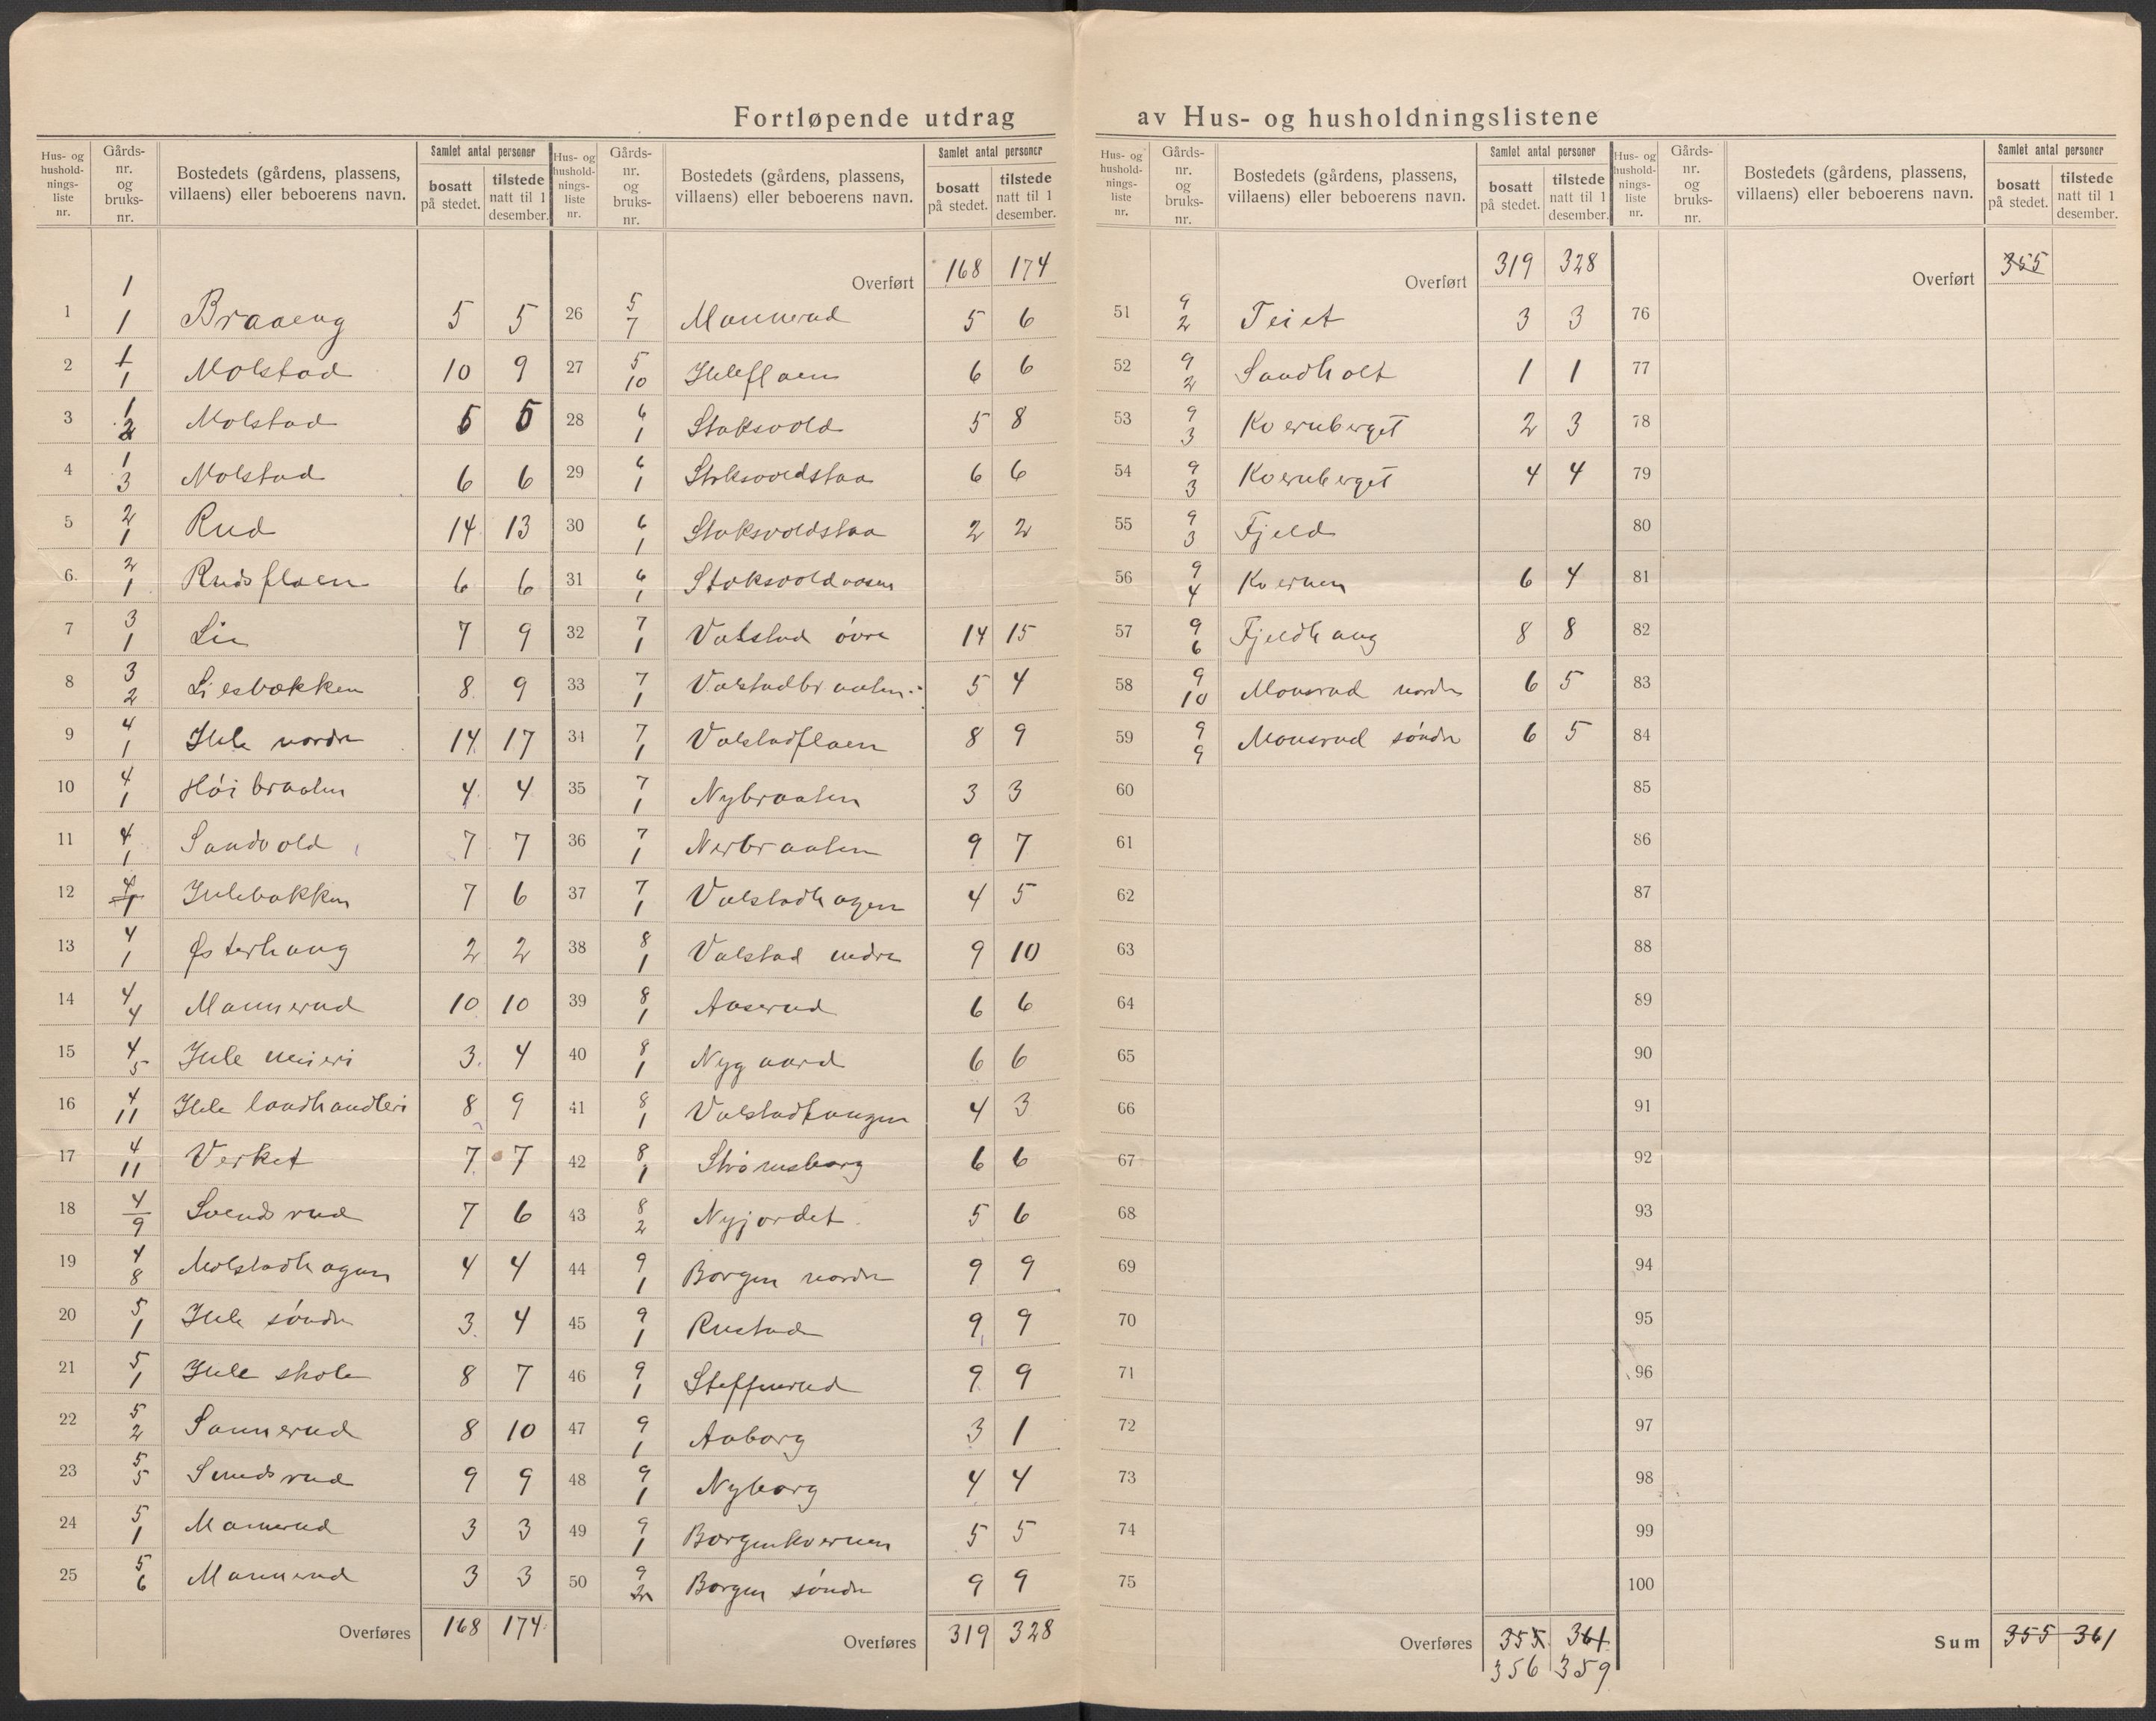 Fortløpende utdrag av Hus- og husholdningslistene
Hus- og hushold- nings- liste nr. | Gårds- nr. og bruks- nr. | Bostedets (gårdens, plassens, villaens) eller beboerens navn. | Samlet antal personer bosatt på stedet. | tilstede natt til 1 desember.
1 | 1/1 | Braaeng | 5 | 5
2 | 1/1 | Molstad | 10 | 9
3 | 1/2 | Molstad | 5 | 5
4 | 1/3 | Molstad | 6 | 6
5 | 2/1 | Rud | 14 | 13
6. | 2/1 | Rudsflaen | 6 | 6
7 | 3/1 | Lie | 7 | 9
8 | 3/2 | Liesbækken | 8 | 9
9 | 4/1 | Jule nordre | 14 | 17
10 | 4/1 | Höibraaten | 4 | 4
11 | 4/1 | Sandvold | 7 | 7
12 | 4/1 | Julebakken | 7 | 6
13 | 4/1 | Østerhaug | 2 | 2
14 | 4/4 | Mannerud | 10 | 10
15 | 4/5 | Jule meieri | 3 | 4
16 | 4/11 | Jule landhandleri | 8 | 9
17 | 4/11 | Verket | 7 | 7
18 | 4/9 | Svendsrud | 7 | 6
19 | 4/8 | Molstadhagen | 4 | 4
20 | 5/1 | Jule söndre | 3 | 4
21 | 5/1 | Jule skole | 8 | 7
22 | 5/2 | Sannerud | 8 | 10
23 | 5/5 | Smedsrud | 9 | 9
24 | 5/1 | Mannerud | 3 | 3
25 | 5/6 | Mannerud | 3 | 3
Overføres | 168 | 174
Hus- og hushold- nings- liste nr. | Gårds- nr. og bruks- nr. | Bostedets (gårdens, plassens, villaens) eller beboerens navn. | Samlet antal personer bosatt på stedet. | tilstede natt til 1 desember.
Overført | 168 | 174
26 | 5/7 | Mannerud | 5 | 6
27 | 5/10 | Juleflaen | 6 | 6
28 | 6/1 | Stoksvold | 5 | 8
29 | 6/1 | Stoksvoldstaa | 6 | 6
30 | 6/1 | Stoksvoldstaa | 2 | 2
31 | 6/1 | Stoksvoldmosen
32 | 7/1 | Valstad övre | 14 | 15
33 | 7/1 | Valstadbraaten | 5 | 4
34 | 7/1 | Valstadflaen | 8 | 9
35 | 7/1 | Nybraaten | 3 | 3
36 | 7/1 | Nerbraaten | 9 | 7
37 | 7/1 | Valstadhagen | 4 | 5
38 | 8/1 | Valstad nedre | 9 | 10
39 | 8/1 | Aaserud | 6 | 6
40 | 8/1 | Nygaard | 6 | 6
41 | 8/1 | Valstadtangen | 4 | 3
42 | 8/1 | Strömsborg | 6 | 6
43 | 8/2 | Nyjordet | 5 | 6
44 | 9/1 | Borgen nordre | 9 | 9
45 | 9/1 | Rustad | 9 | 9
46 | 9/1 | Steffenrud | 9 | 9
47 | 9/1 | Aaborg | 3 | 1
48 | 9/1 | Nyborg | 4 | 4
49 | 9/1 | Borgenkvernen | 5 | 5
50 | 9/2 | Borgen söndre | 9 | 9
Overføres | 319 | 328
Hus- og hushold- nings- liste nr. | Gårds- nr. og bruks- nr. | Bostedets (gårdens, plassens, villaens) eller beboerens navn. | Samlet antal personer bosatt på stedet. | tilstede natt til 1 desember.
Overført | 319 | 328
51 | 9/2 | Teiet | 3 | 3
52 | 9/2 | Sandholt | 1 | 1
53 | 9/3 | Kvernberget | 2 | 3
54 | 9/3 | Kvernberget | 4 | 4
55 | 9/3 | Fjeld
56 | 9/4 | Kvernen | 6 | 4
57 | 9/6 | Fjeldhaug | 8 | 8
58 | 9/10 | Monsrud nordre | 6 | 5
59 | 9/9 | Monsrud söndre | 6 | 5
60
61
62
63
64
65
66
67
68
69
70
71
72
73
74
75
Overføres | 355 | 361
356 | 359
Hus- og hushold- nings- liste nr. | Gårds- nr. og bruks- nr. | Bostedets (gårdens, plassens, villaens) eller beboerens navn. | Samlet antal personer bosatt på stedet. | tilstede natt til 1 desember.
Overført | 355
76
77
78
79
80
81
82
83
84
85
86
87
88
89
90
91
92
93
94
95
96
97
98
99
100
Sum | 355 | 361